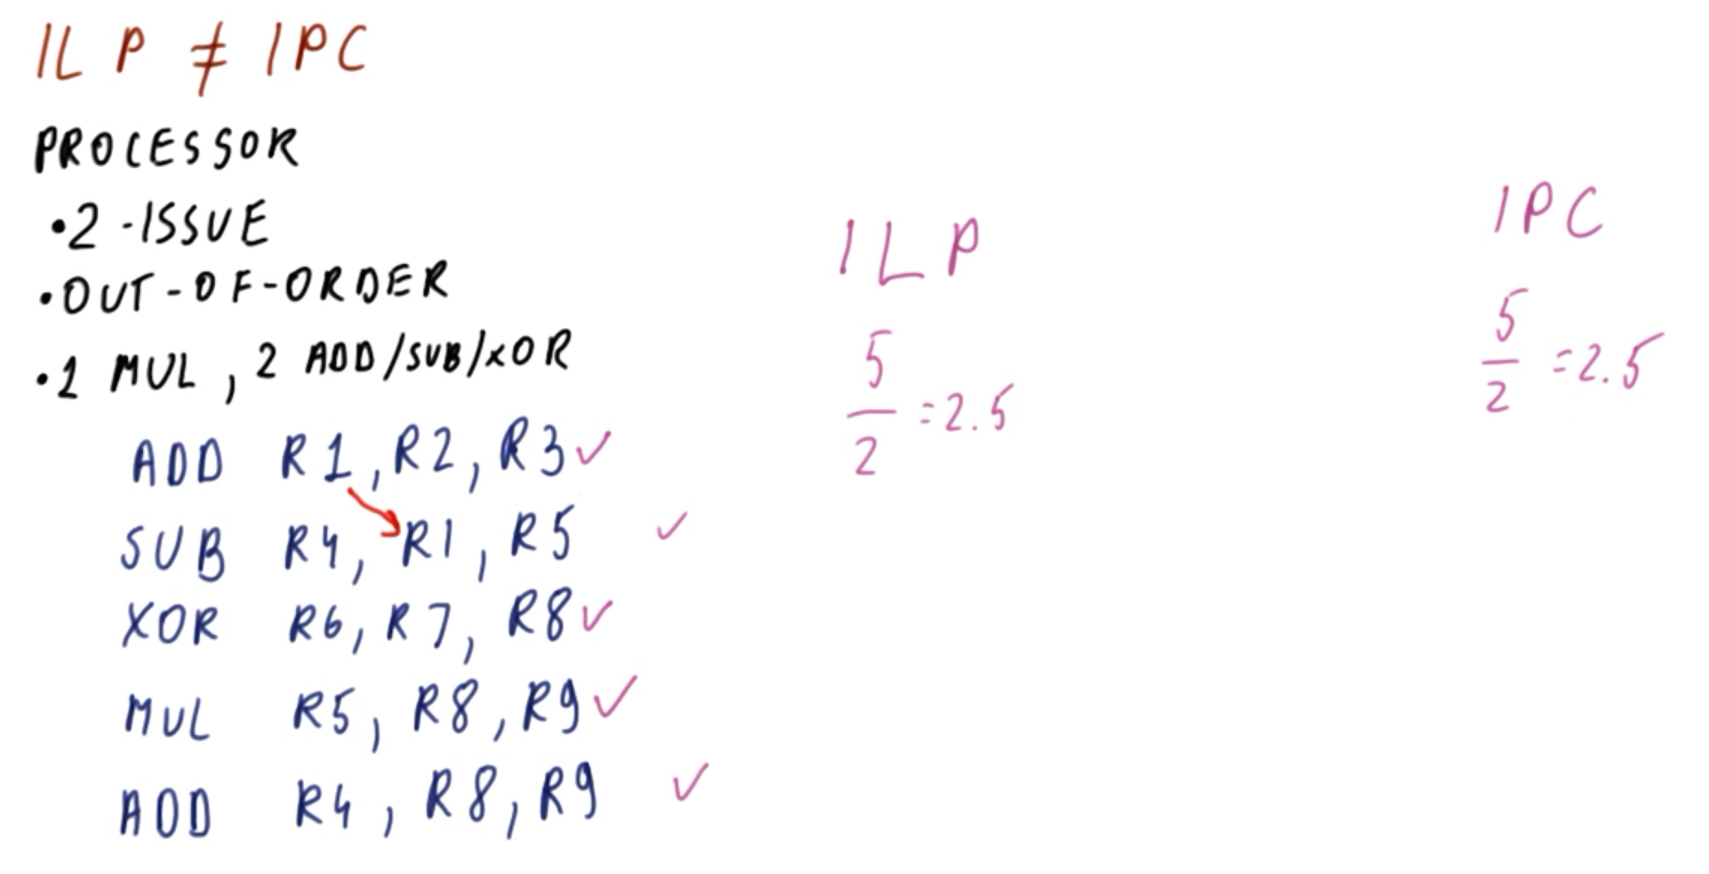 ILP ≠ IPC
PROCESSOR
•2-ISSUE
•OUT-OF-ORDER
•1 MUL, 2 ADD/SUB/XOR
ADD R1, R2, R3 ✓
SUB R4, R1, R5 ✓
XOR R6, R7, R8 ✓
MUL R5, R8, R9 ✓
ADD R4, R8, R9 ✓
ILP
5/2 = 2.5
IPC
5/2 = 2.5